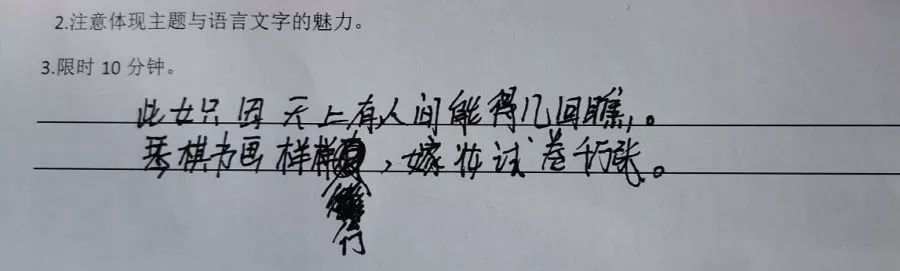 2.注意体现主题与语言文字的魅力。
3.限时 10 分钟。
此女只因天上有人间能得几回瞧。
琴棋书画样样,嫁妆试卷千张。
行